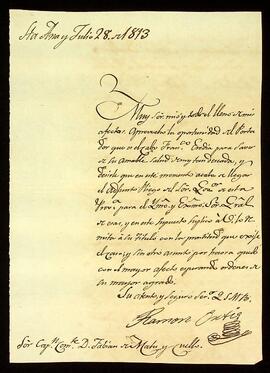 Sta Ana y Julio 28. de 1813
Muy Sor. mio y todo el lleno de mi
afecto: Aprovecho la oportunidad del Porta
dor que es el cabo Fran.co Erdia para saver
de su amable salud es muy deseada, y
decirle que en este momento acaba de llegar
el adjunto Pliego del Sor. de esta
Prov.a para el Exmo. Sor. Gral
de esas, y en este supuesto suplico a V. lo re
mita a su Titulo con la prontitud que exije
el caso; y sin otro asunto por haora quedo
con el mayor afecto esperando ordenes de
su mayor agrado.
Su atento, y seguro Ser.or Q.S.M.B.
Ramon Ortiz
Sor Cap.n Com.te D. Fabian de y Cuello.